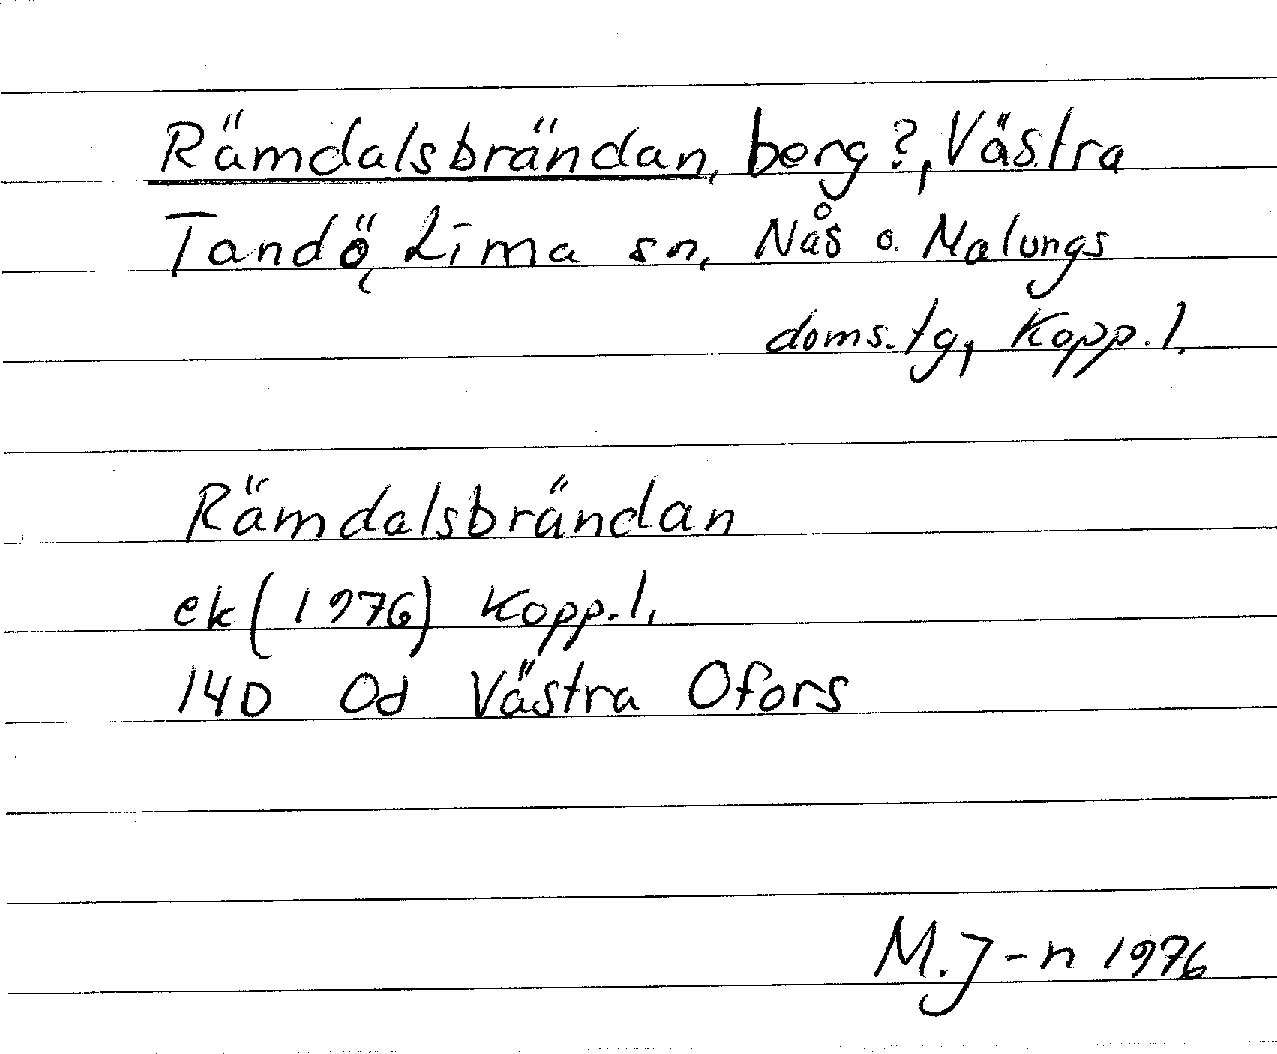 Rämdalsbrändan, berg?, Västra
Tandö, Lima sn, Nås o. Malungs
doms.tg, Kopp.l.
Rämdalsbrändan
ek (1976) Kopp.l.
14D 0d Västra Ofors
M.J-n 1976